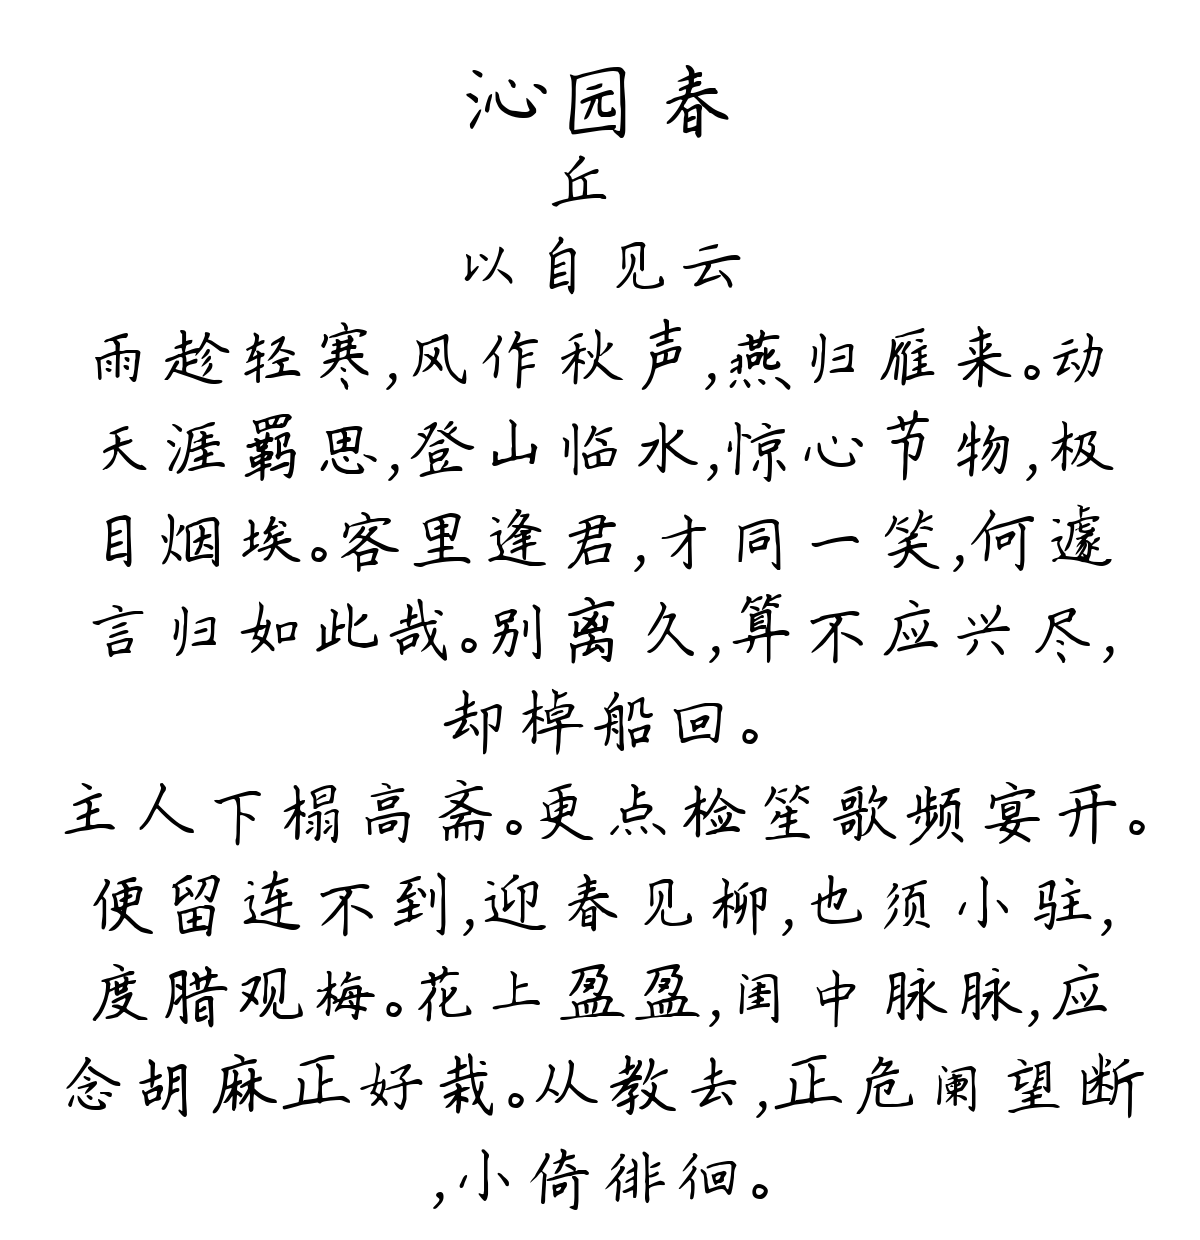 沁园春
丘
以自见云
雨趁轻寒,风作秋声,燕归雁来。动
天涯羁思,登山临水,惊心节物,极
目烟埃。客里逢君,才同一笑,何遽
言归如此哉。别离久,算不应兴尽,
却棹船回。
主人下榻高斋。更点检笙歌频宴开。
便留连不到,迎春见柳,也须小驻,
度腊观梅。花上盈盈,闺中脉脉,应
念胡麻正好栽。从教去,正危阑望断
,小倚徘徊。